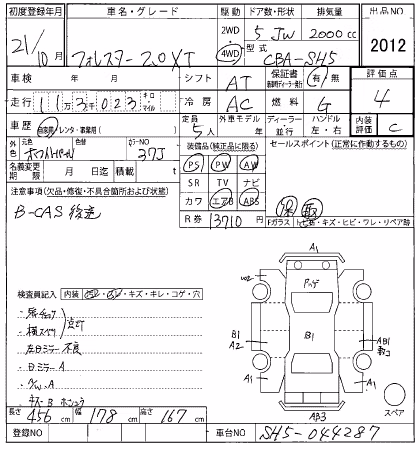 初度登録年月 車名・グレード 駆動 ドア数・形状 排気量 出品NO
21/10月 フォレスター 2.0XT 2WD 4WD 5 JW 2000cc 2012
型式 CBA-SH5
車検 年 月 シフト AT 保証書 新車時ディーラー発行 有・無 評価点
走行 113,023 キロ マイル 冷房 AC 燃料 G 4
車歴 自家用・レンタ・事業用( ) 定員 5人 外車モデル年 ディーラー 並行 ハンドル 左・右 内装評価 C
外色 元色 色替 カラーNO 37J
装備品(純正品に限る) セールスポイント(正常に作動するもの)
名義変更期限 月 日迄 積載 t
PS PW AW
SR TV ナビ
カワ エアB ABS
R券 13710 円
注意事項(欠品・修復・不具合箇所および状態)
B-CAS 後送
保 取
Fガラス トビ石・キズ・ヒビ・ワレ・リペア跡
検査員記入 内装 キズ・キレ・コゲ・穴
点灯
左Dミラー 不良
Dミラー A
A1
U2
B1
A2
B1
AB1
A1
A1
AB3
スペア
長さ 456 cm 幅 178 cm 高さ 167 cm
登録NO 車台NO SH5-044287